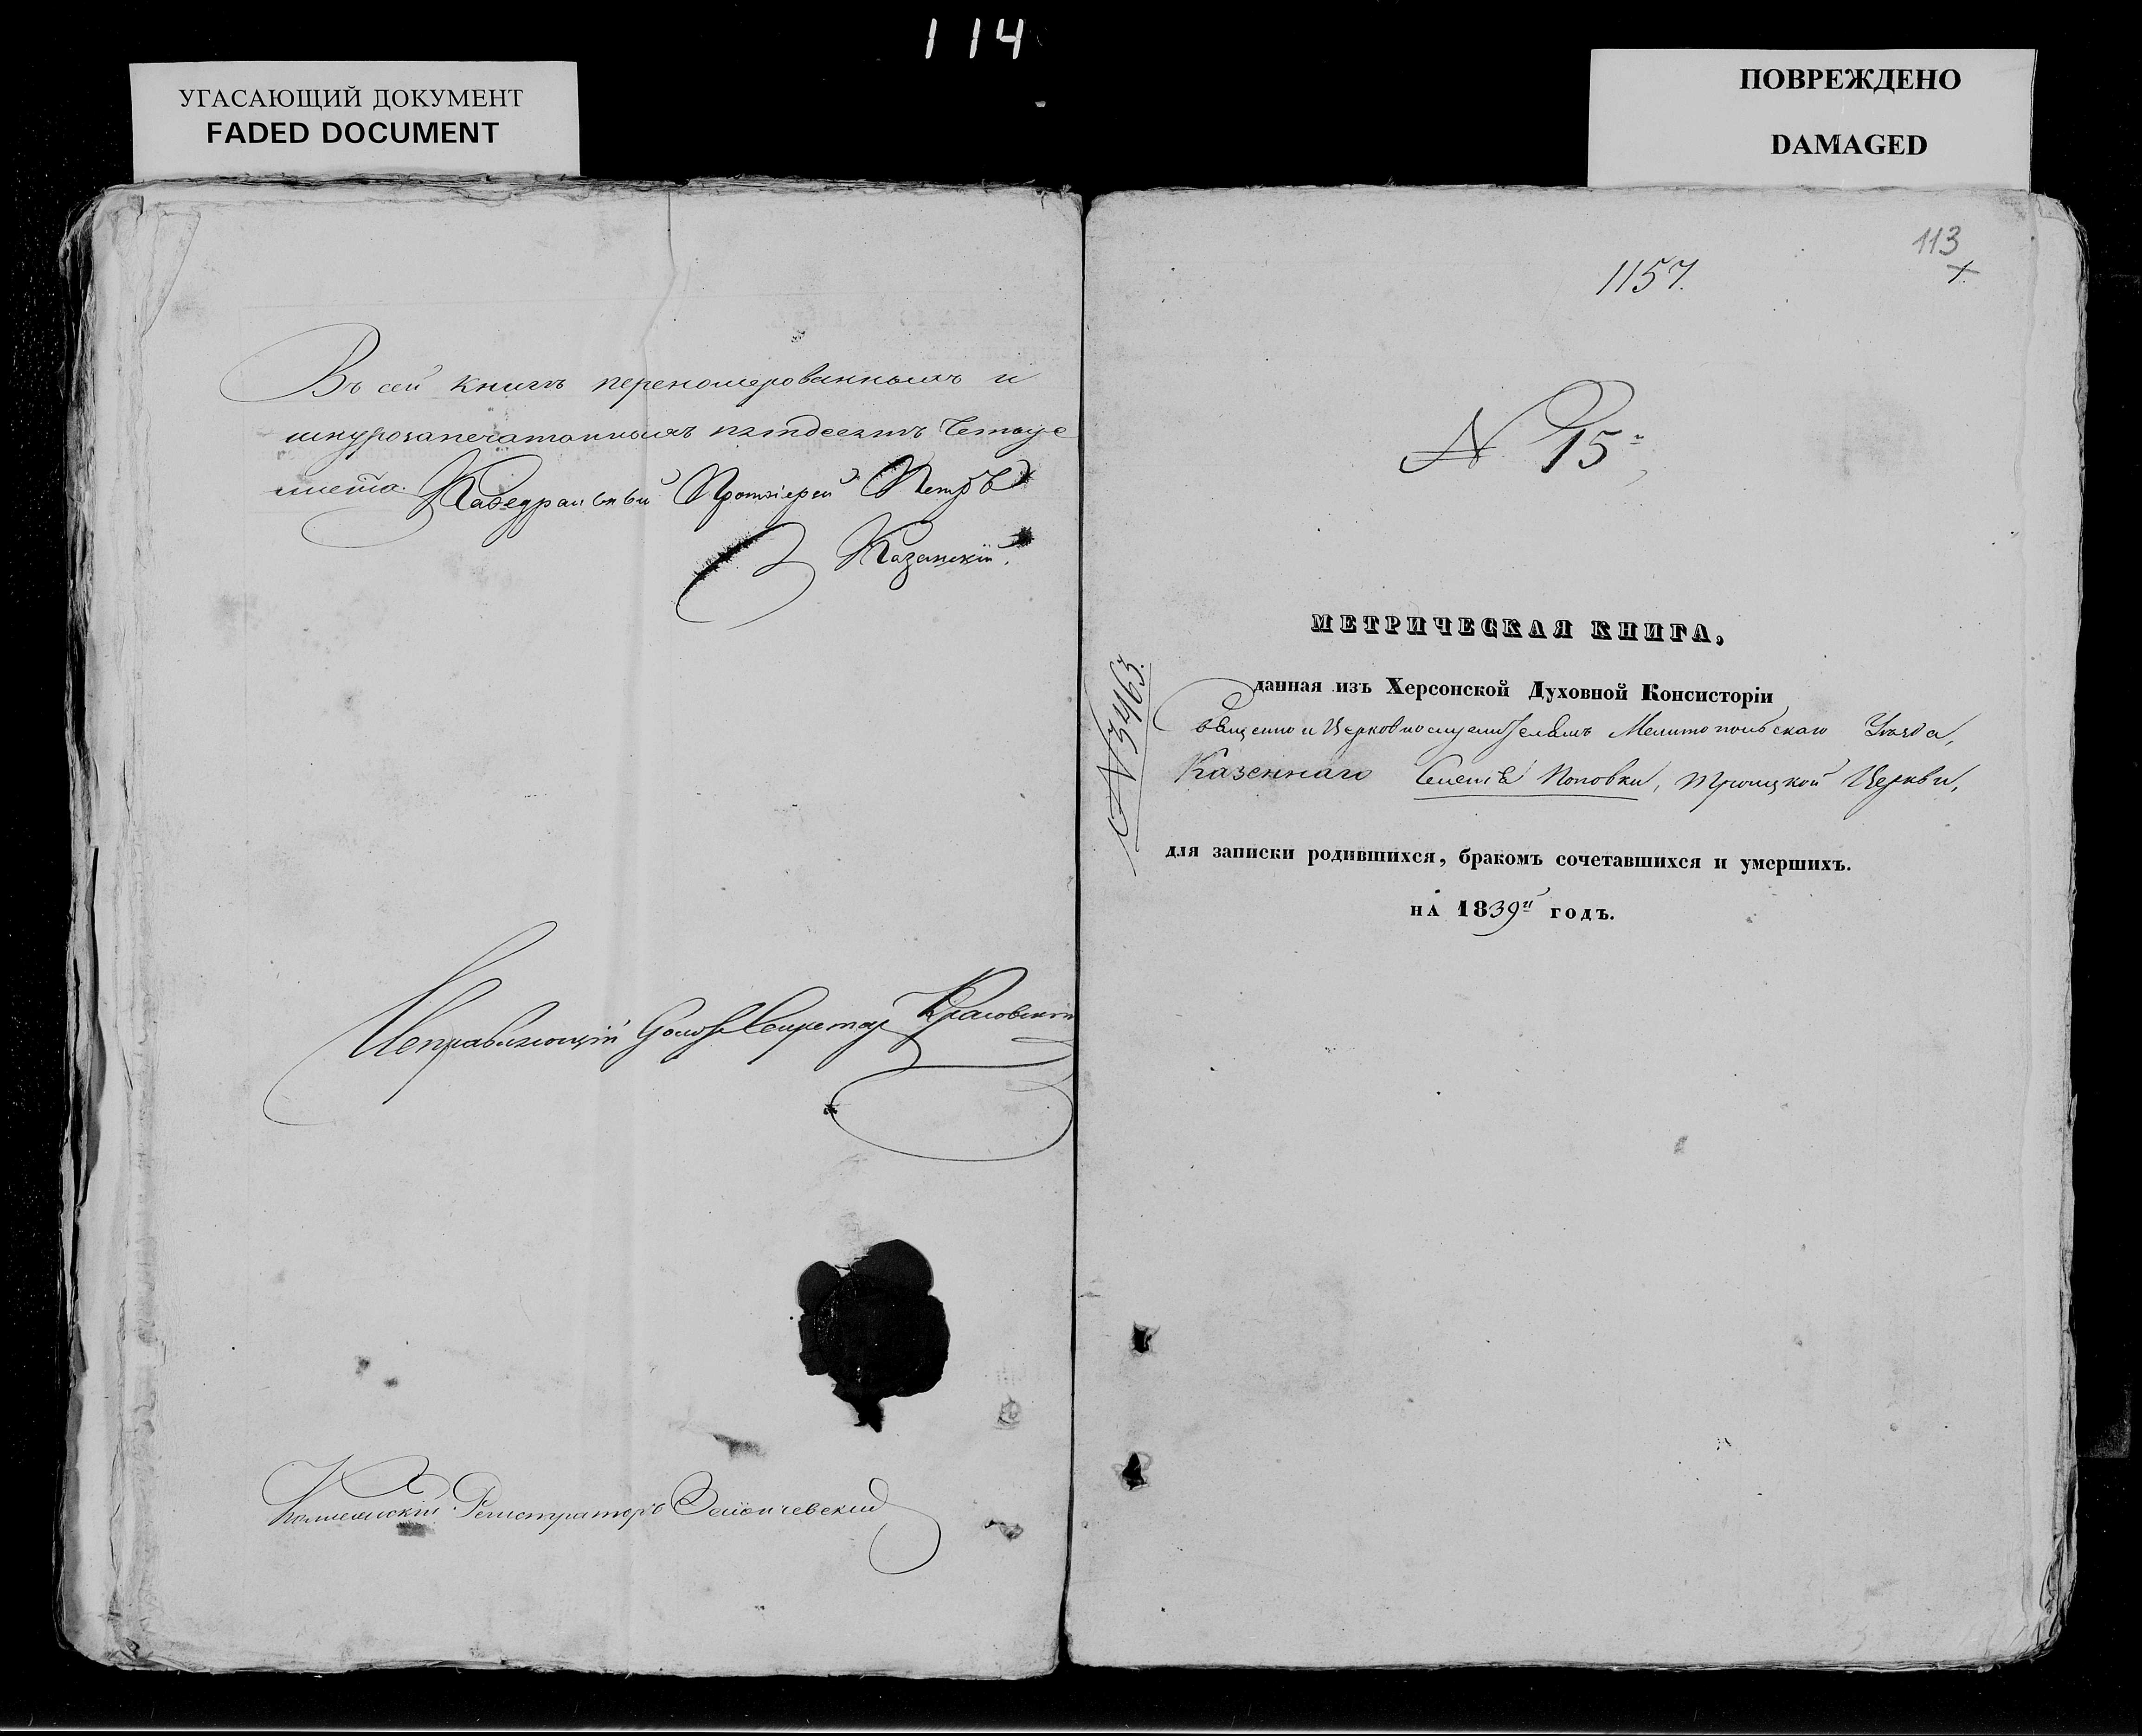 114
УГАСАЮЩИЙ ДОКУМЕНТ
FADED DOCUMENT
ПОВРЕЖДЕНО
DAMAGED
Въ сей книгѣ перенomерованныхъ и
шнурозапечатанныхъ пятдесятъ четыре
листа. Кафедральный Протоіерей Петръ
Казанскій.
Исправляющій должность Секретаря
Коллежскій Регистраторъ
113
1157.
N 15
N 3463.
МЕТРИЧЕСКАЯ КНИГА,
данная изъ Херсонской Духовной Консисторіи
Священно и Церковнослужителямъ Мелитопольскаго Уѣзда,
Казеннаго Селенія Поповки, Троицкой Церкви,
для записки родившихся, бракомъ сочетавшихся и умершихъ.
на 1839й годъ.